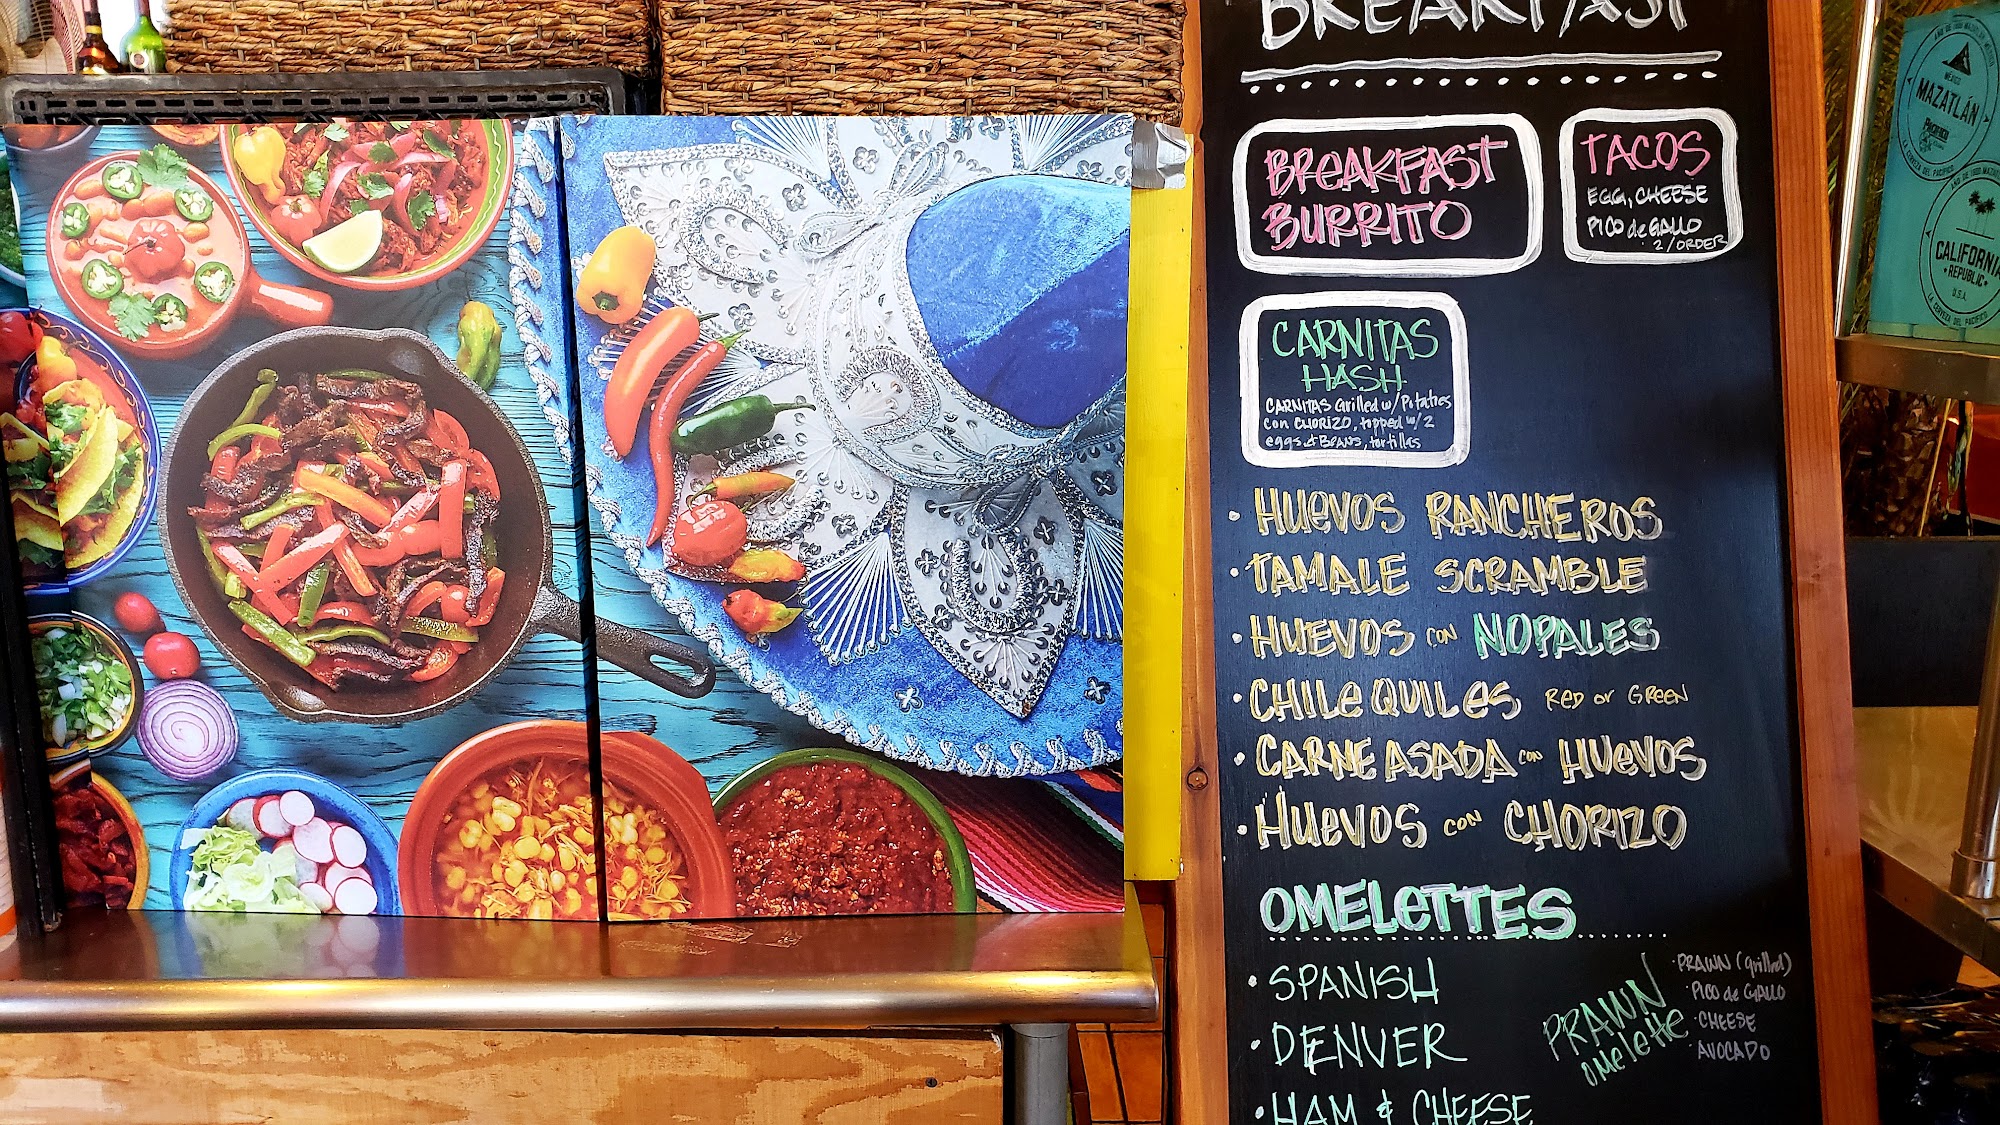 BREAKFAST
BREAKFAST
BURRITO
TACOS
EGG, CHEESE
PICO de GALLO
2/ORDER
CARNITAS
HASH
CARNITAS Grilled w/Potatoes
con CHORIZO, topped w/2
eggs & BEANS, tortillas
• HUEVOS RANCHEROS
• TAMALE SCRAMBLE
• HUEVOS CON NOPALES
• CHILEQUILES RED or GREEN
• CARNE ASADA con HUEVOS
• HUEVOS CON CHORIZO
OMELETTES
• SPANISH
• DENVER
• HAM & CHEESE
PRAWN
OMelette
• PRAWN (grilled)
• PICO de GALLO
• CHEESE
• AVOCADO
MÉXICO
MAZATLÁN
CALIFORNIA
• REPUBLIC •
U.S.A.
LA CERVEZA DEL PACIFICO